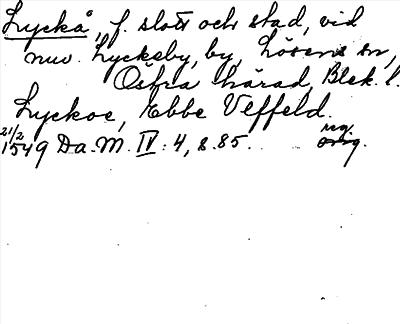 Lyckå, f. slott och stad, vid
nuv. Lyckeby, by, Lösens sn,
Östra härad, Blek. l.
Lyckoe, Ebbe Velffeld.
21/2 reg.
1549 Da. M. IV: 4, s. 85. orig.